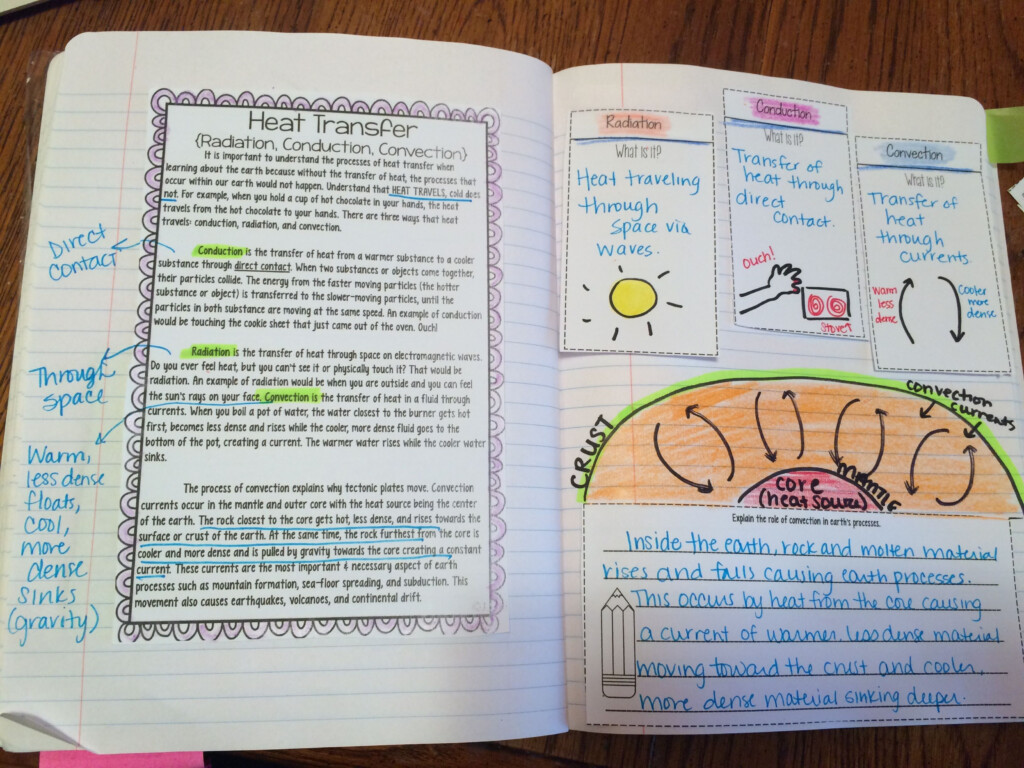 Heat Transfer
{Radiation, Conduction, Convection}
It is important to understand the processes of heat transfer when
learning about the earth because without the transfer of heat, the processes that
occur within our earth would not happen. Understand that HEAT TRAVELS, cold does
not. For example, when you hold a cup of hot chocolate in your hands, the heat
travels from the hot chocolate to your hands. There are three ways that heat
travels: conduction, radiation, and convection.
Direct
contact
Conduction is the transfer of heat from a warmer substance to a cooler
substance through direct contact. When two substances or objects come together,
their particles collide. The energy from the faster moving particles (the hotter
substance or object) is transferred to the slower-moving particles, until the
particles in both substance are moving at the same speed. An example of conduction
would be touching the cookie sheet that just came out of the oven. Ouch!
Through
space
Radiation is the transfer of heat through space on electromagnetic waves.
Do you ever feel heat, but you can't see it or physically touch it? That would be
radiation. An example of radiation would be when you are outside and you can feel
the sun's rays on your face. Convection is the transfer of heat in a fluid through
currents. When you boil a pot of water, the water closest to the burner gets hot
first, becomes less dense and rises while the cooler, more dense fluid goes to the
bottom of the pot, creating a current. The warmer water rises while the cooler water
sinks.
Warm,
less dense
floats,
cool,
more
dense
sinks
(gravity)
The process of convection explains why tectonic plates move. Convection
currents occur in the mantle and outer core with the heat source being the center
of the earth. The rock closest to the core gets hot, less dense, and rises towards the
surface or crust of the earth. At the same time, the rock furthest from the core is
cooler and more dense and is pulled by gravity towards the core creating a constant
current. These currents are the most important & necessary aspect of earth
processes such as mountain formation, sea-floor spreading, and subduction. This
movement also causes earthquakes, volcanoes, and continental drift.
Radiation
What is it?
Heat traveling
through
space via
waves.
Conduction
What is it?
Transfer of
heat through
direct
contact.
Ouch!
Stove↑
Convection
What is it?
Transfer of
heat
through
currents
Warm
less
dense
Cooler
more
dense
CRUST
convection
currents
mantle
core
(heat source)
Explain the role of convection in earth's processes.
Inside the earth, rock and molten material
rises and falls causing earth processes.
This occurs by heat from the core causing
a current of warmer, less dense material
moving toward the crust and cooler,
more dense material sinking deeper.